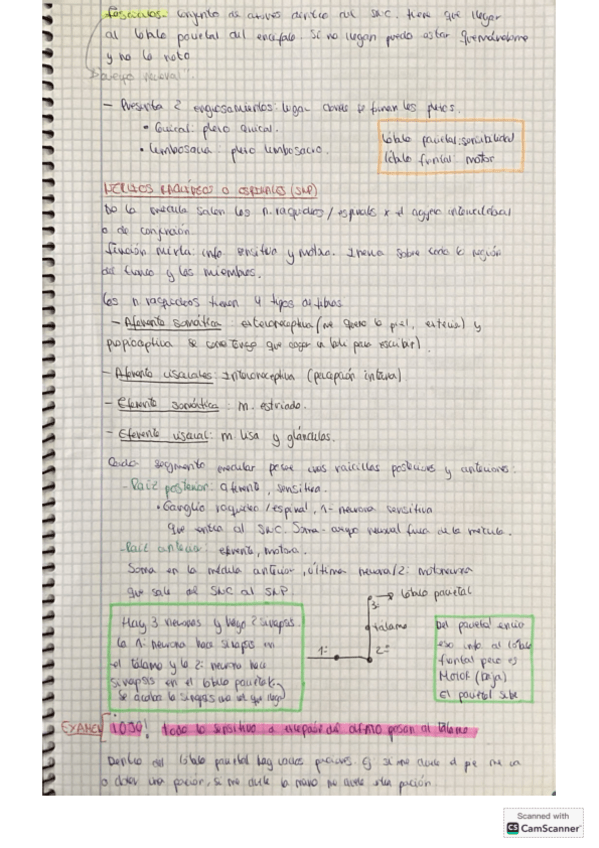 Fascículos: conjunto de axones dentro del SNC. tiene que llegar
al lóbulo parietal del encéfalo. Si no llegan puedo estar quemándome
y no lo noto
- Presenta 2 engrosamientos: lugar donde se forman los plexos.
• Cervical: plexo cervical.
• Lumbosacra: plexo lumbosacro.
lóbulo parietal: sensibilidad
lóbulo frontal motor
NERVIOS RAQUÍDEOS O ESPINALES (SNP)
De la médula salen los n. raquídeos / espinales x el agujero intervertebral
o de conjunción.
función mixta: info sensitiva y motora. Inerva sobre todo la región
del tronco y los miembros.
los n raquídeos tienen 4 tipos de fibras
- Aferente somática: exteroceptiva (me quemo la piel, externa) y
propioceptiva se como tengo que coger un boli para escribir).
- Aferente viscerales: Interoceptiva (percepción interna).
- Eferente somática: m. estriado.
- Eferente visceral: m lisa y glándulas.
Cada segmento medular posee unas raicillas posteriores y anteriores.
- Raíz posterior: aferente, sensitiva.
• Ganglio raquídeo / espinal, 1ª neurona sensitiva
que entra al SNC. Soma - cuerpo neuronal fuera de la médula.
- Raíz anterior eferente, motora.
Soma en la médula anterior, última neurona / 2ª motoneurona
que sale del SNC al SNP.
3ª → lóbulo parietal
tálamo
1ª
2ª
Hay 3 neuronas y hago 2 sinapsis.
la 1ª neurona hace sinapsis en
el tálamo y la 2ª neurona hace
sinapsis en el lóbulo parietal.
Se acaba la sinapsis una vez que llega
Del parietal envío
esa info al lóbulo
frontal pero es
Motor (baja)
El parietal sube
EXAMEN [¡OJO! todo lo sensitivo a excepción del olfato pasan al tálamo
Dentro del lóbulo parietal hay varias porciones. Ej si me duele el pie me va
a doler una porción, si me duele la mano me duele otra porción.
Scanned with
CS CamScanner